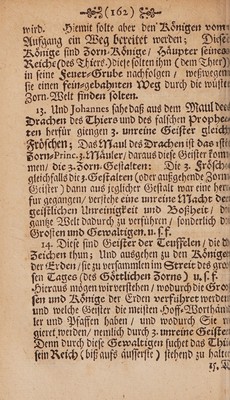 (162)
wird. Hiemit solte aber den Königen vom
Aufgang ein Weg bereitet werden; Diese
Könige sind Zorn-Könige/ Häupter seines
Reichs (des Thiers:) diese solten ihm (dem Thier)
in seine Feuer-Grube nachfolgen/ weßwegen
sie einen fein-gebahnten Weg durch die wüste
Zorn-Welt finden solten.
13. Und Johannes sahe daß aus dem Maul des
Drachen des Thiers und des falschen Prophe-
ten herfür giengen 3. unreine Geister gleich
Fröschen; Das Maul des Drachen ist das
Zorn-Princ. 3. Mäuler/ daraus diese Geister kom-
men/ die 3. Zorn-Gestalten: Die 3. Frösche
gleichfalls die 3. Gestalten (oder aufgehende Zorn-
Geister) dann aus jeglicher Gestalt war eine her-
für gegangen/ verstehe eine unreine Macht der
geistlichen Unreinigkeit und Boßheit/ die
gantze Welt dadurch zu verführen/ sonderlich die
Grosten und Gewaltigen/ u. s. f.
14. Diese sind Geister der Teuffelen/ die da
Zeichen thun; Und ausgehen zu den Königen
der Erden/ sie zu versammlen im Streit des gros-
sen Tages (des Göttlichen Zorns) u. s. f.
Hieraus mögen wir verstehen/ wodurch die Gros-
sen und Könige der Erden verführet werden
und welche Geister die meisten Hoff-Worthän-
ler und Pfaffen haben/ und wodurch Sie
gieret werden/ nemlich durch 3. unreine Geister
Denn durch diese Gewaltigen suchet das Thier
sein Reich (biß aufs äusserste) stehend zu halten
15.